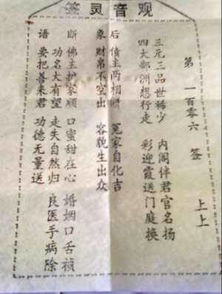 观音灵签
第一百零六签 上上
三元三品世稀少 内阁伴君官名扬
四大部洲想行走 彩迎霞送门庭换
后 债主两相 冤家自化吉
象 财帛不空出 容貌生出众
断 佛主护家顺 口蜜甜在心 婚姻口舌祯
功名大有望 走失自然归 良医手病除
语 要把善来君 功德无量送